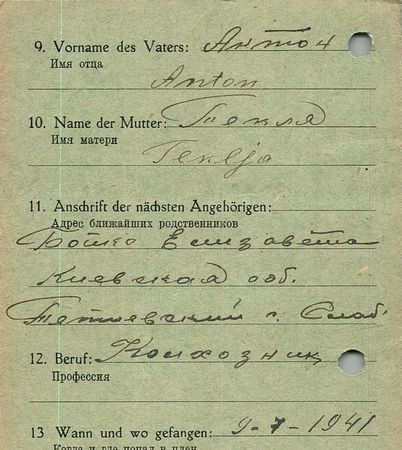 9. Vorname des Vaters: Антон
Имя отца
Anton
10. Name der Mutter: Текля
Имя матери
Teklja
11. Anschrift der nächsten Angehörigen:
Адрес ближайших родственников
Елизавета
Киевская обл.
Тетиевский
12. Beruf: Колхозник
Профессия
13 Wann und wo gefangen: 9-7-1941
Когда и где попал в плен